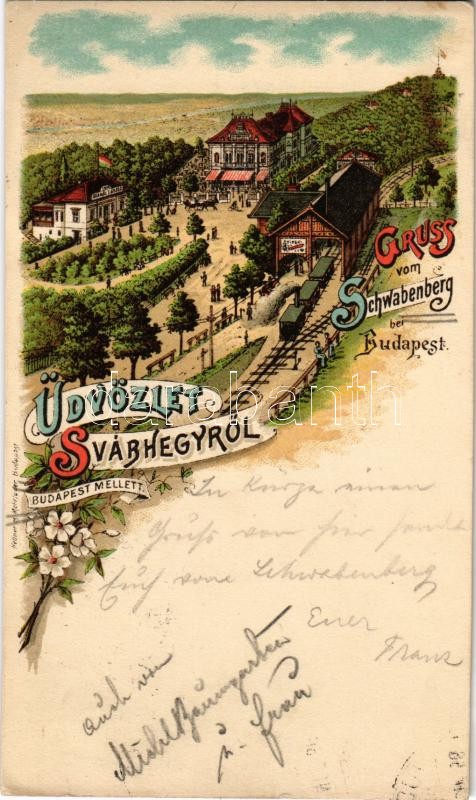 GRUSS
vom
Schwabenberg
bei
Budapest.
ÜDVÖZLET
SVÁBHEGYRŐL
BUDAPEST MELLETT.
darabanth
In Kürze einen
Gruss von hier sendet
Euch vom Schwabenberg
Euer
Franz
auch von
Michl Baumgarten
u. frau